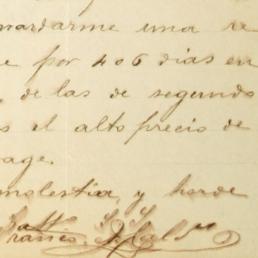 mardarme una re
e por 4 o 6 dias en
de las de segundo
s el alto precio de
age.
molestia, y horde